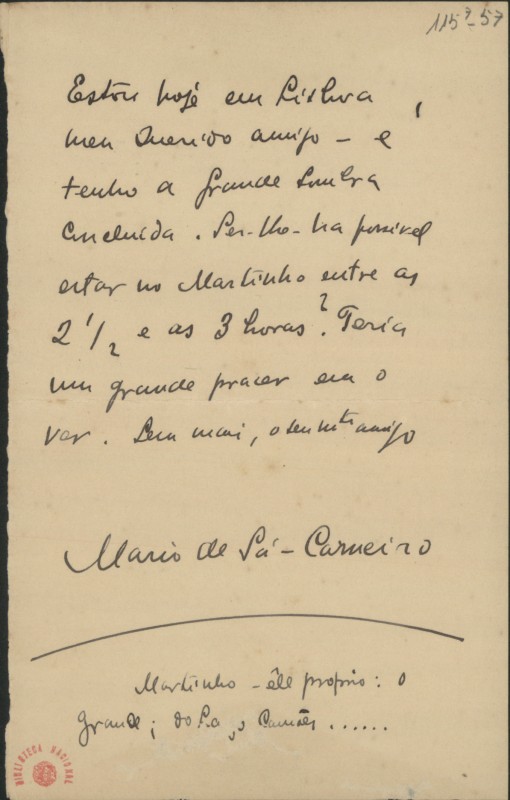 115⁷-57
Estou hoje em Lisboa,
meu Querido amigo - e
tenho a Grande Sombra
concluida. Ser-lho-ha possivel
estar no Martinho entre as
2 1/2 e as 3 horas? Teria
um grande prazer em o
ver. Sem mais, o seu mto amigo
Mario de Sá-Carneiro
Martinho - êle proprio: o
Grande; do Camões ......
BIBLIOTECA NACIONAL